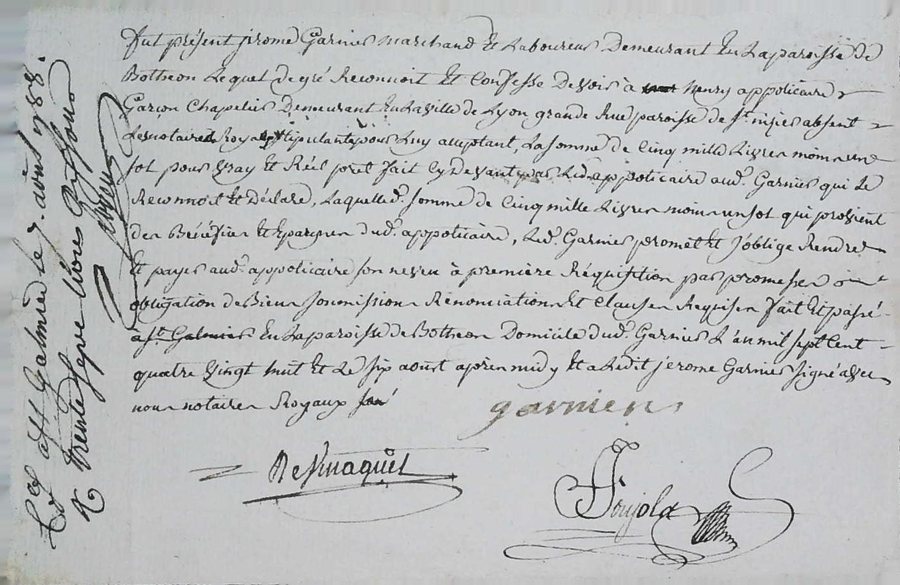 Fut présent jrome Garnier Marchand Et Laboureur Demeurant En Laparoisse de
Bothéon Lequel de gré Reconnoit Et Confesse Devoir à henry appoticaire
Garçon Chapelier Demeurant En Laville de Lyon grande Rue paroisse de St. absent
Lesnotaires Royaux stipulants pour Luy aceptant, La somme de Cinq mille Livres moins un
sol pour Vray Et Réel pret fait Cy Devant par Led. appoticaire aud. Garnier qui Le
Reconnoit Et Déclare, Laquelle d. somme de Cinq mille Livres moins un sol qui provient
des Bénéfices Et Epargnes dud. appoticaire, Led. Garnier promet Et s'oblige Rendre
Et payer aud. appoticaire son neveu à première Réquisition par promesses
obligation de Biens soumissions Rénonciations Et Clauses Requises fait Et passé
a St. Galmier En Laparoisse de Bothéon Domicile dud. Garnier L'an mil sept Cent
quatre Vingt huit Et Le six aoust après midy Et a Ledit jerome Garnier signé avec
nous notaires Royaux
garnier
Pujola
Galmier le 7. aout 1788.
R. Trente sept livres